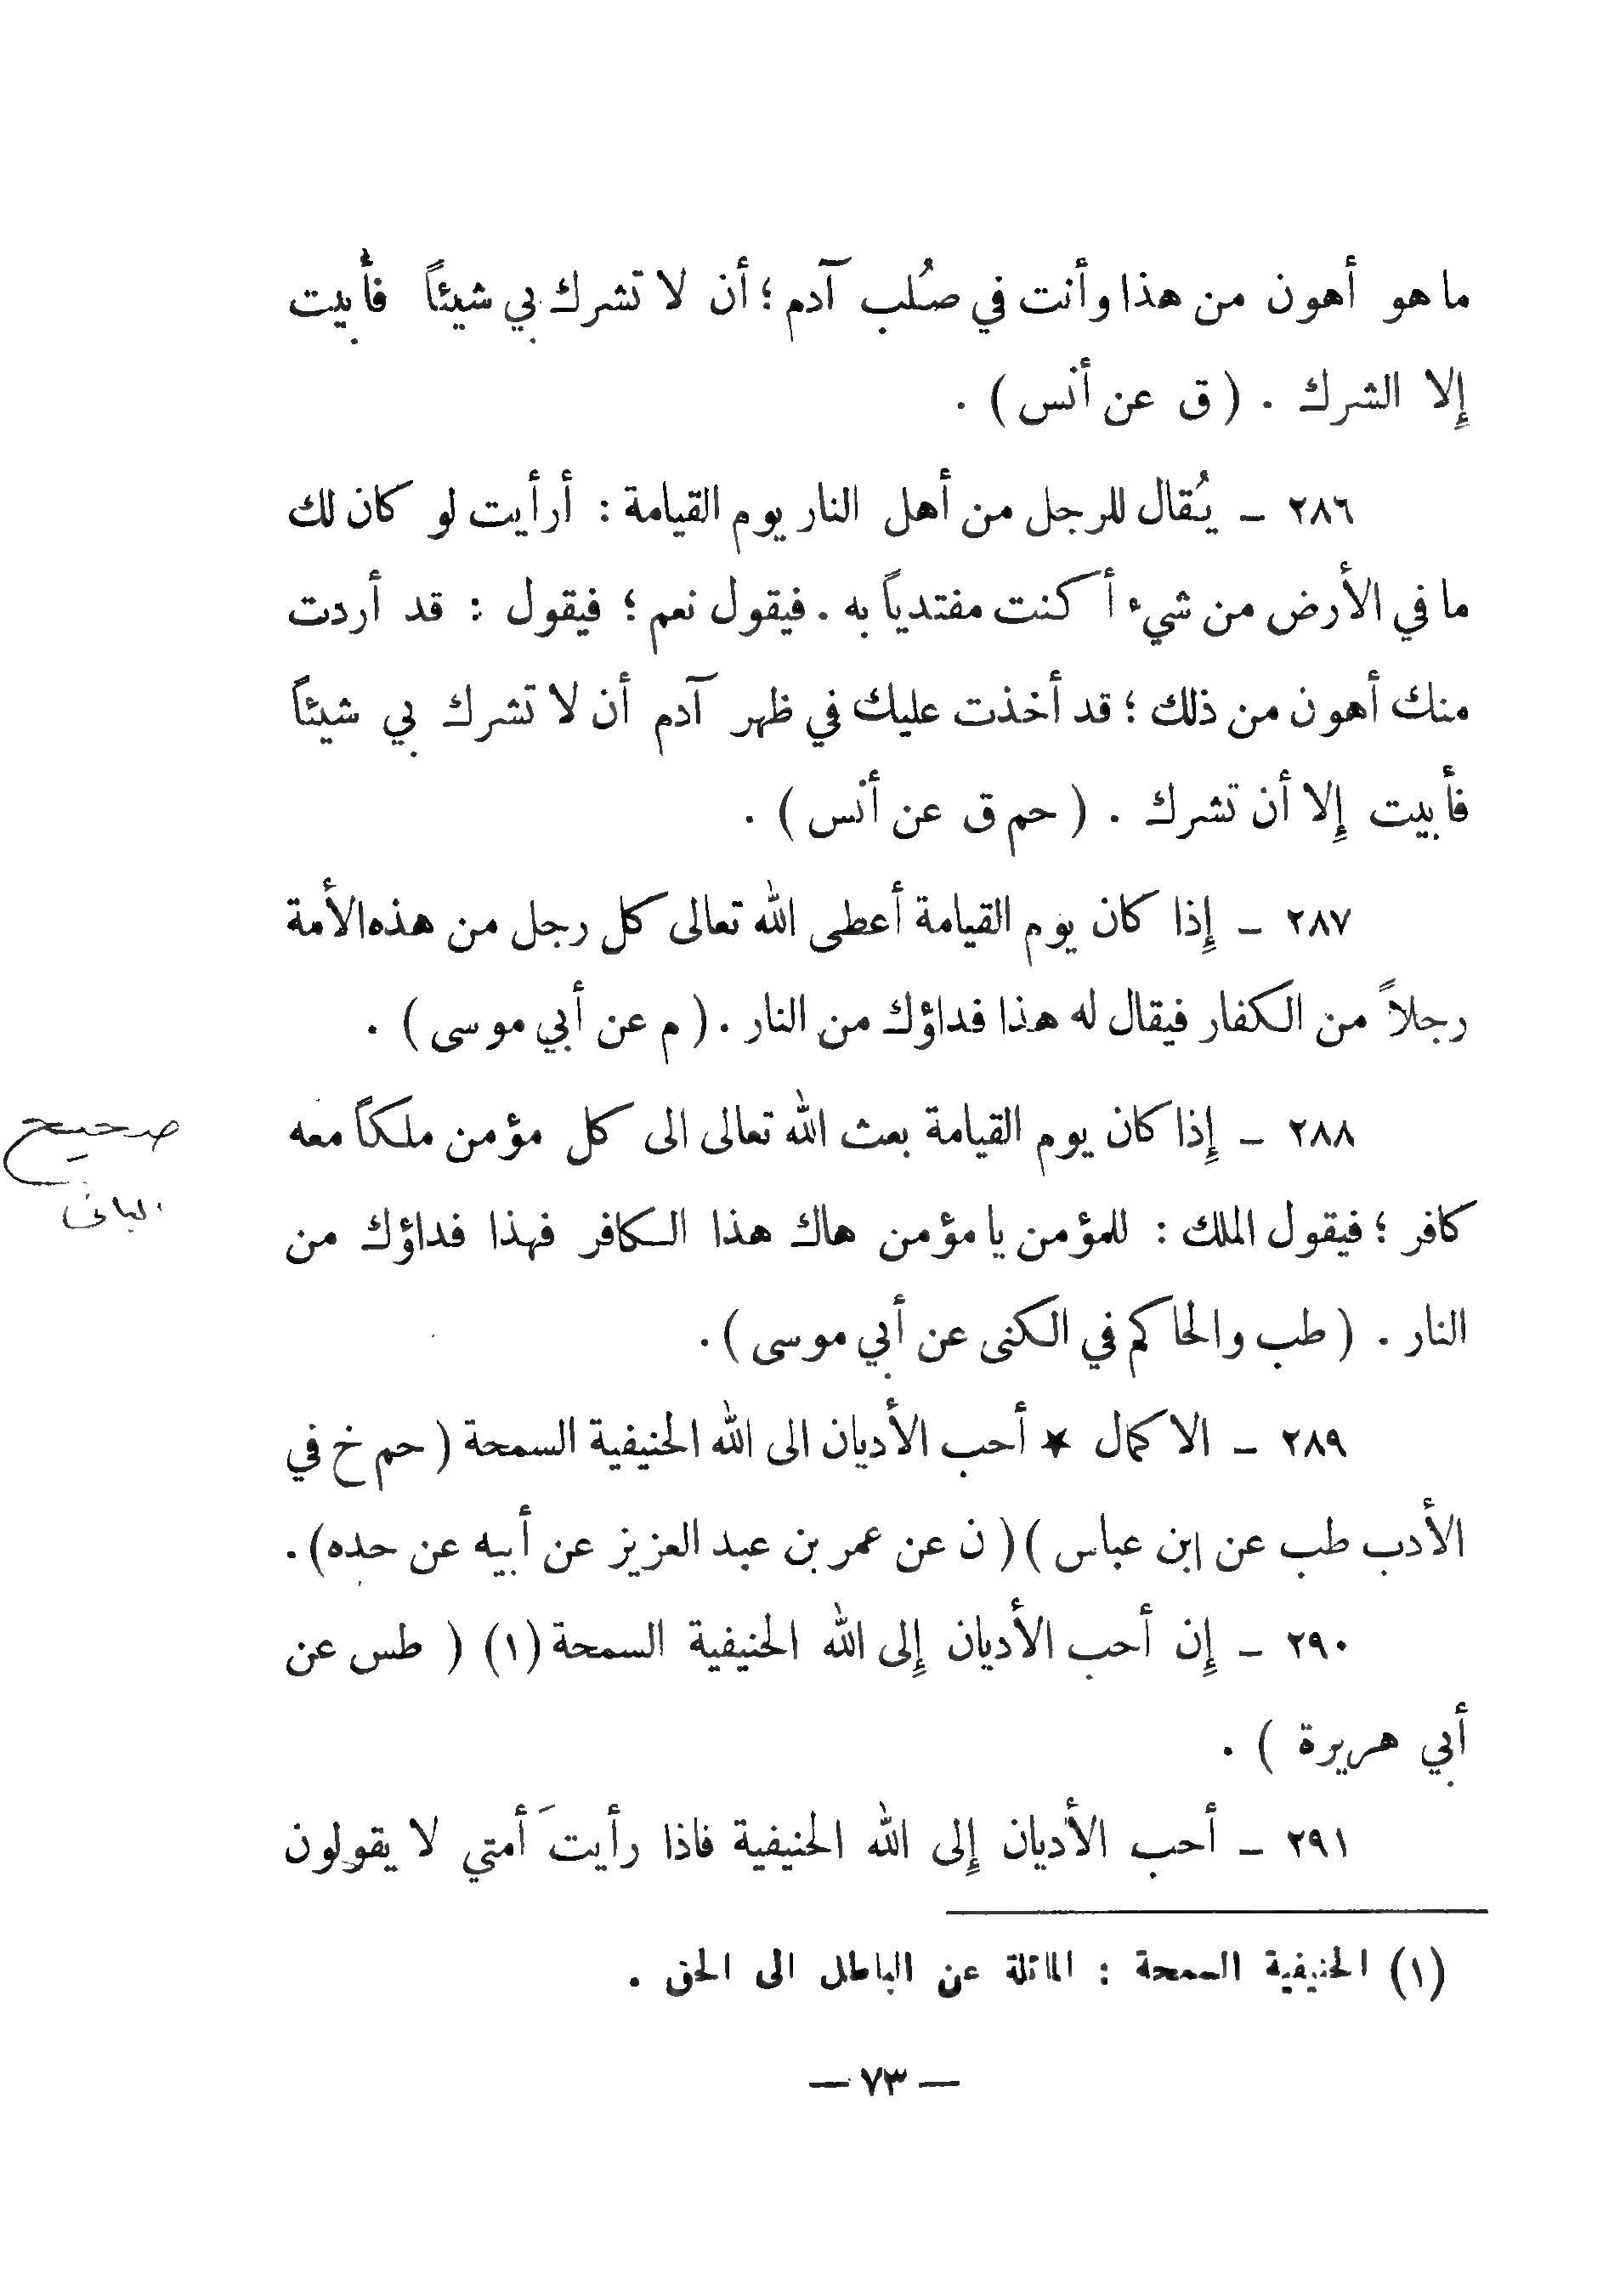 ما هو أهون من هذا وأنت في صُلب آدم ؛ أن لا تشرك بي شيئاً فأبيت
إلا الشرك . ( ق عن أنس ) .
٢٨٦ – يُقال للرجل من أهل النار يوم القيامة : أرأيت لو كان لك
ما في الأرض من شيء أكنت مفتدياً به . فيقول نعم ؛ فيقول : قد أردت
منك أهون من ذلك ؛ قد أخذت عليك في ظهر آدم أن لا تشرك بي شيئاً
فأبيت إلا أن تشرك . ( حم ق عن أنس ) .
٢٨٧ – إذا كان يوم القيامة أعطى الله تعالى كل رجل من هذه الأمة
رجلاً من الكفار فيقال له هذا فداؤك من النار . ( م عن أبي موسى ) .
٢٨٨ – إذا كان يوم القيامة بعث الله تعالى الى كل مؤمن ملكاً معه
صحيح
كافر ؛ فيقول الملك : للمؤمن يا مؤمن هاك هذا الكافر فهذا فداؤك من
البانى
النار . ( طب والحاكم في الكنى عن أبي موسى ) .
٢٨٩ – الاكمال ★ أحب الأديان الى الله الحنيفية السمحة ( حم خ في
الأدب طب عن ابن عباس ) ( ن عن عمر بن عبد العزيز عن أبيه عن حده ) .
٢٩٠ – إن أحب الأديان إلى الله الحنيفية السمحة (١) ( طس عن
أبي هريرة ) .
٢٩١ – أحب الأديان إلى الله الحنيفية فاذا رأيتَ أمتي لا يقولون
(١) الحنيفية السمحة : المائلة عن الباطل الى الحق .
— ٧٣ —